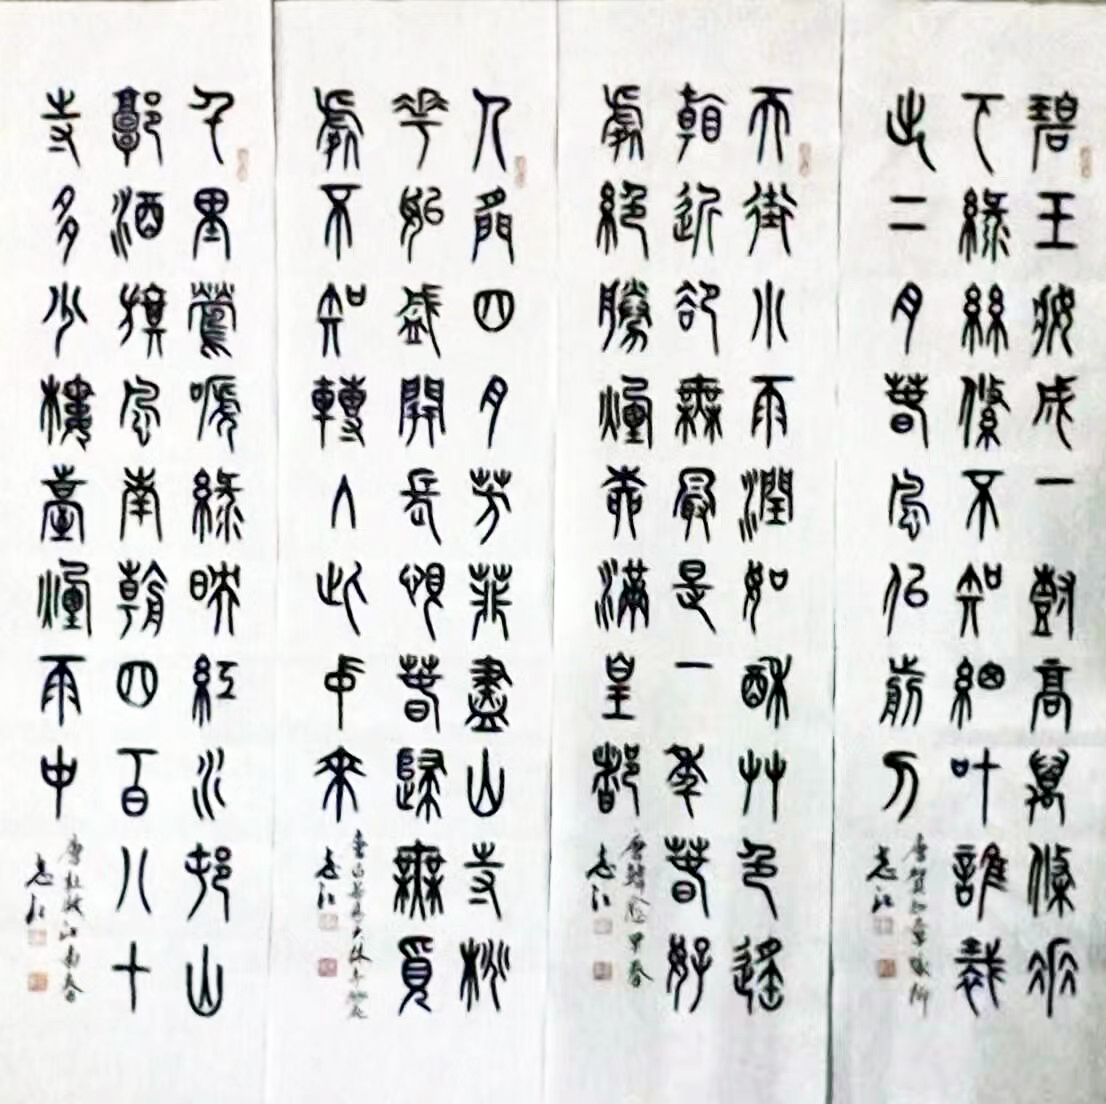 碧玉妝成一樹高萬條垂
下綠絲絛不知細葉誰裁
出二月春風似剪刀
唐賀知章咏柳
志江
天街小雨潤如酥草色遙
看近却無最是一年春好
處絕勝煙柳滿皇都
唐韓愈早春
志江
人間四月芳菲盡山寺桃
花始盛開長恨春歸無覓
處不知轉入此中來
唐白居易大林寺桃花
志江
千里鶯啼綠映紅水村山
郭酒旗風南朝四百八十
寺多少樓臺煙雨中
唐杜牧江南春
志江